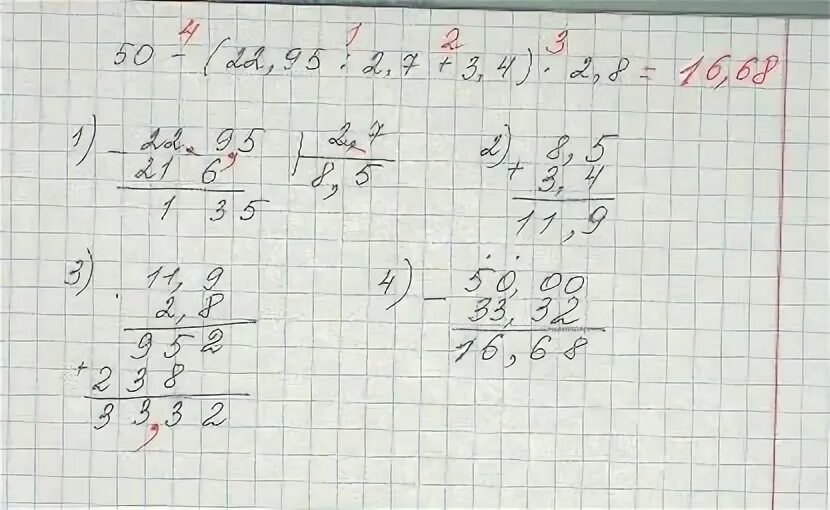 4 1 2 3
50 - (22,95 : 2,7 + 3,4) · 2,8 = 16,68
1) - 22,95 | 2,7
21 6 8,5
1 35
2) 8,5
+ 3,4
11,9
3) 11,9
· 2,8
952
+ 238
33,32
4) - 50,00
33,32
16,68